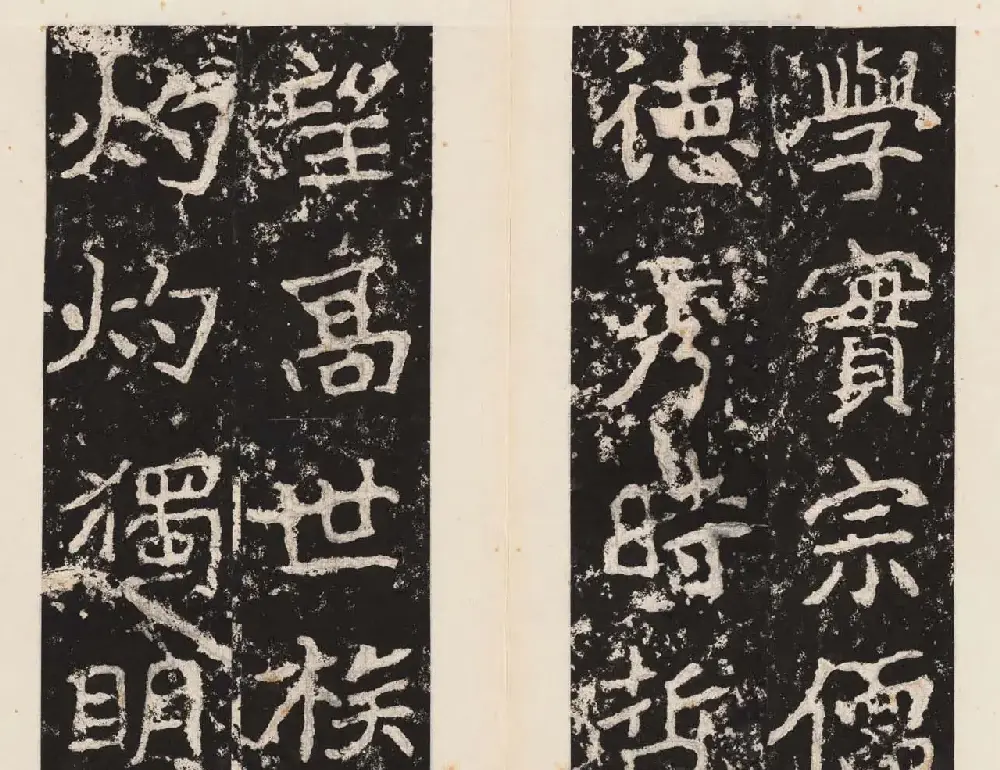 學實宗儒
德秀時哲
望高世族
灼灼獨明